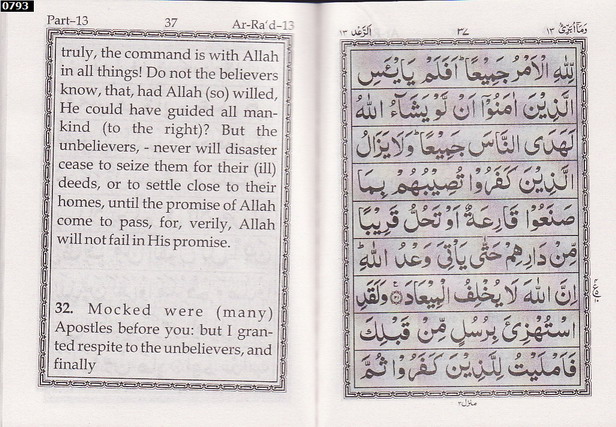 0793
Part–13 37 Ar-Ra‘d–13
truly, the command is with Allah
in all things! Do not the believers
know, that, had Allah (so) willed,
He could have guided all man-
kind (to the right)? But the
unbelievers, - never will disaster
cease to seize them for their (ill)
deeds, or to settle close to their
homes, until the promise of Allah
come to pass, for, verily, Allah
will not fail in His promise.
32. Mocked were (many)
Apostles before you: but I gran-
ted respite to the unbelievers, and
finally
وَمَآ اُبَرِّئُ ١٣ ٣٧ اَلرَّعْد ١٣
لِلّٰهِ الْاَمْرُ جَمِيْعًا ؕ اَفَلَمْ يَايْـَٔسِ
الَّذِيْنَ اٰمَنُوْۤا اَنْ لَّوْ يَشَآءُ اللّٰهُ
لَهَدَى النَّاسَ جَمِيْعًا ؕ وَلَا يَزَالُ
الَّذِيْنَ كَفَرُوْا تُصِيْبُهُمْ بِمَا
صَنَعُوْا قَارِعَةٌ اَوْ تَحُلُّ قَرِيْبًا
مِّنْ دَارِهِمْ حَتّٰى يَاْتِيَ وَعْدُ اللّٰهِ ؕ
اِنَّ اللّٰهَ لَا يُخْلِفُ الْمِيْعَادَ ۞ وَلَقَدِ
اسْتُهْزِئَ بِرُسُلٍ مِّنْ قَبْلِكَ
فَاَمْلَيْتُ لِلَّذِيْنَ كَفَرُوْا ثُمَّ
منزل ٣